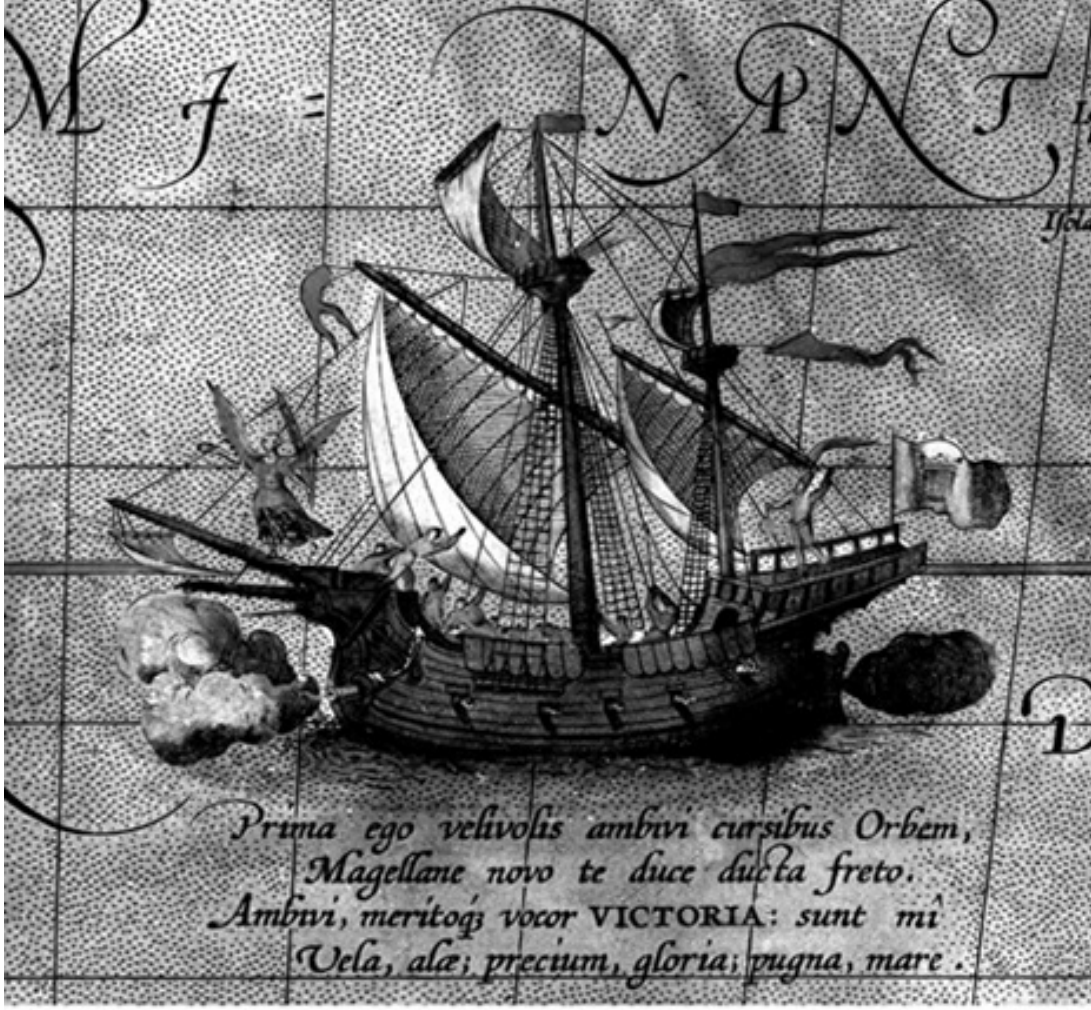 M I = N A N T
Isole
Prima ego velivolis ambivi cursibus Orbem,
Magellane novo te duce ducta freto.
Ambivi, meritoqꝫ vocor VICTORIA: sunt mî
Vela, alæ; precium, gloria; pugna, mare.